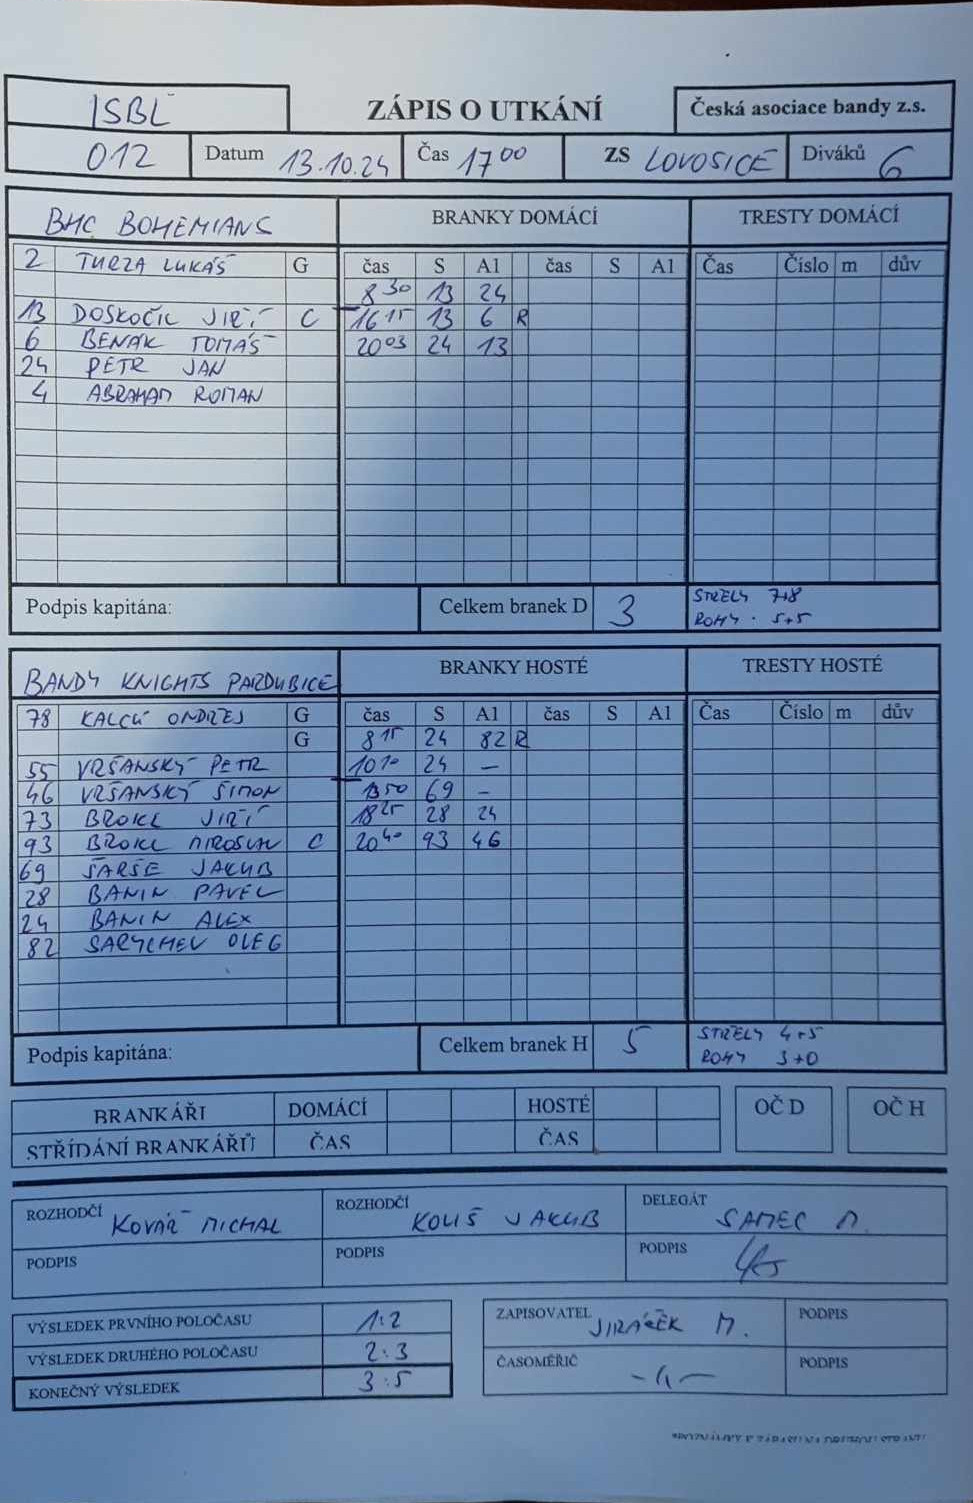 1SBL ZÁPIS O UTKÁNÍ Česká asociace bandy z.s.
012 Datum 13.10.24 Čas 17 00 ZS LOVOSICE Diváků 6
BHC BOHEMIANS BRANKY DOMÁCÍ TRESTY DOMÁCÍ
2 TURZA LUKÁŠ G čas S A1 čas S A1 Čas Číslo m dův
8 30 13 24
13 DOSKOČIL JIŘÍ C 16 15 13 6 R
6 BENÁK TOMÁŠ 20 03 24 13
24 PETR JAN
4 ABRAHAM ROMAN
Podpis kapitána: Celkem branek D 3 STŘELY 7+8
ROHY · 5+5
BANDY KNIGHTS PARDUBICE BRANKY HOSTÉ TRESTY HOSTÉ
78 KALCŮ ONDŘEJ G čas S A1 čas S A1 Čas Číslo m dův
G 8 15 24 82 R
55 VRŠANSKÝ PETR 10 10 24 –
46 VRŠANSKÝ ŠIMON 13 50 69 –
73 BROKL JIŘÍ 18 25 28 24
93 BROKL MIROSLAV C 20 40 93 46
69 ŠARŠE JAKUB
28 BANIN PAVEL
24 BANIN ALEX
82 SARYCHEV OLEG
Podpis kapitána: Celkem branek H 5 STŘELY 4+5
ROHY 3+0
BRANKÁŘI DOMÁCÍ HOSTÉ OČ D OČ H
STŘÍDÁNÍ BRANKÁŘŮ ČAS ČAS
ROZHODČÍ KOVÁŘ MICHAL ROZHODČÍ KOLIŠ JAKUB DELEGÁT SAMEC M.
PODPIS PODPIS PODPIS
VÝSLEDEK PRVNÍHO POLOČASU 1:2 ZAPISOVATEL JIRÁČEK M. PODPIS
VÝSLEDEK DRUHÉHO POLOČASU 2:3 ČASOMĚŘIČ -11- PODPIS
KONEČNÝ VÝSLEDEK 3:5